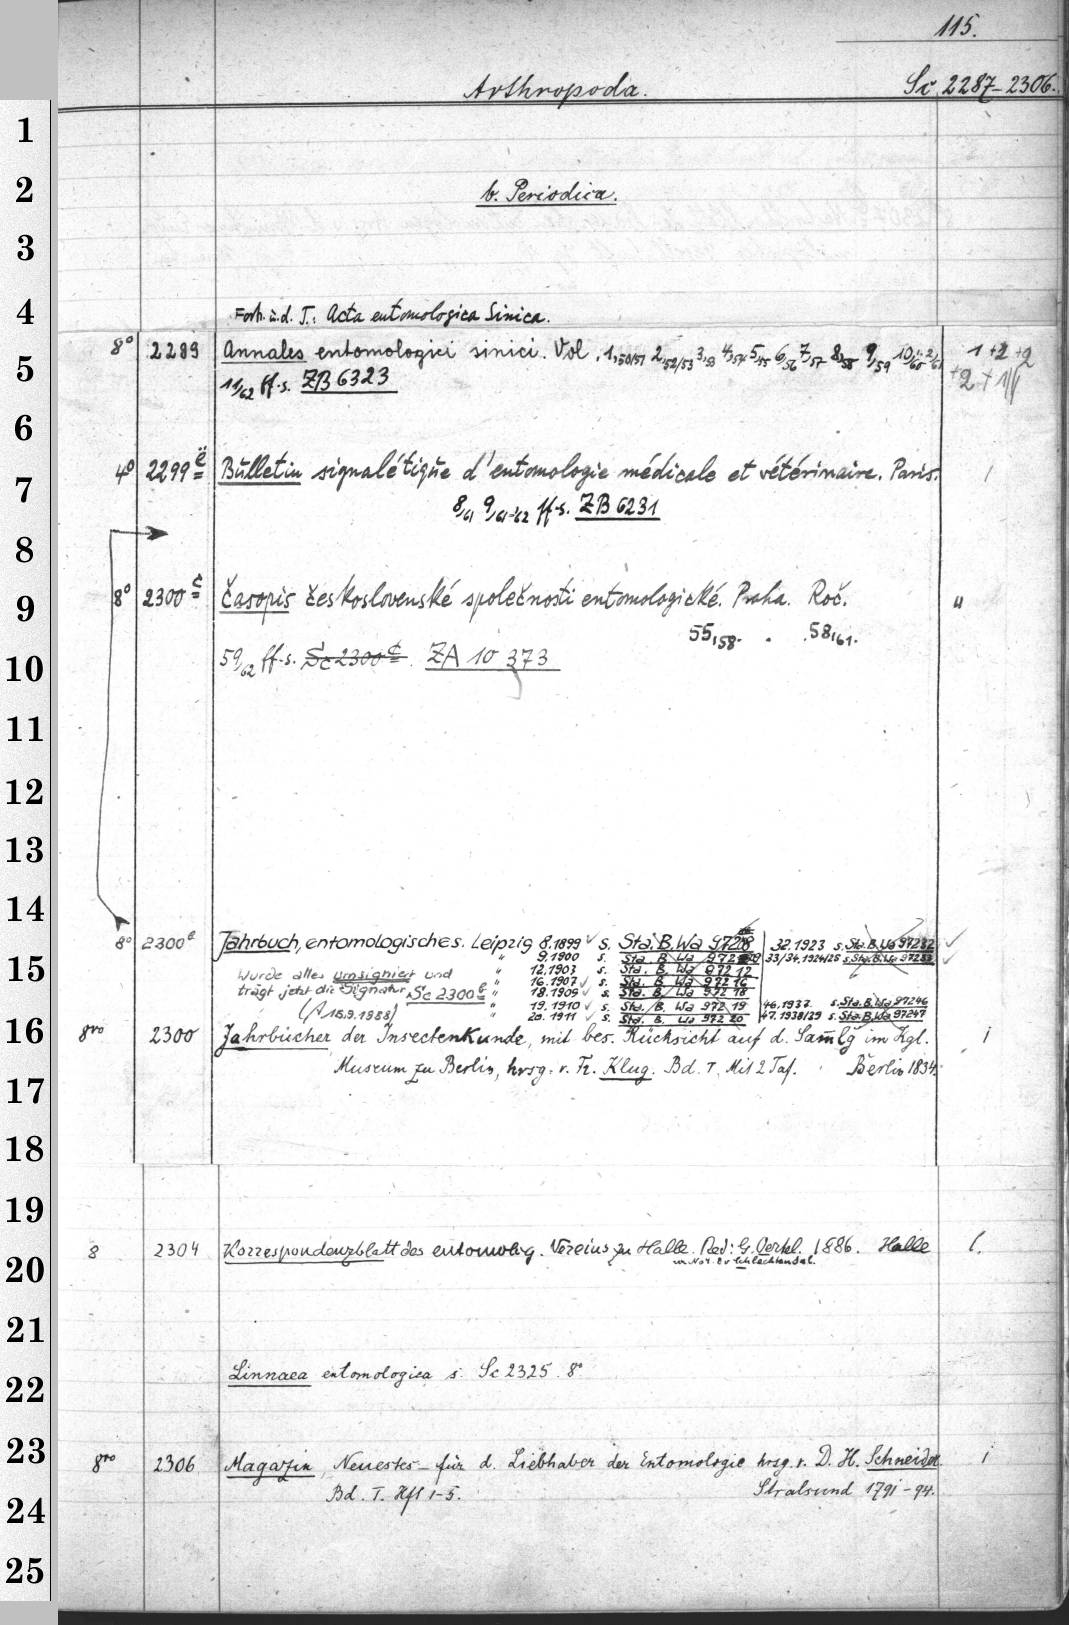 115.
Arthropoda. Sc 2287-2306.
1
2 b. Periodica.
3
4 Forts. u. d. T.: Acta entomologica Sinica.
5 8° 2289 Annales entomologici sinici. Vol. 1,50/51 2,52/53 3,53 4,54 5,55 6,56 7,57 8,58 9,59 10,60 1 +2 +2
11,62 ff. s. ZB 6323 +2 +
6
7 4° 2299 ë Bulletin signalétique d'entomologie médicale et vétérinaire. Paris. 1
8,61 9,61-62 ff. s. ZB 6231
8
9 8° 2300 č Časopis československé společnosti entomologické. Praha. Roč. 4
55,58- . 58,61.
10 59,62 ff. s. Sc 2300 č. ZA 10 373
11
12
13
14
8° 2300 e Jahrbuch, entomologisches. Leipzig 8.1899 s. Sta. B. Wa 97218 32.1923 s. Sta. B. Wa 97232
15 " 9.1900 s. Sta. B. Wa 972 33/34.1924/25 s. Sta. B. Wa 97233
Wurde alles umsigniert und " 12.1903 s. Sta. B. Wa 972 12
trägt jetzt die Signatur Sc 2300 e " 16.1907 s. Sta. B. Wa 972 16
" 18.1909 s. Sta. B. Wa 972 18
(15.9.1958) " 19.1910 s. Sta. B. Wa 972 19 46.1937 s. Sta. B. Wa 97246
" 20.1911 s. Sta. B. Wa 972 20 47.1938/39 s. Sta. B. Wa 97247
16 8vo 2300 Jahrbücher der Insectenkunde, mit bes. Rücksicht auf d. Samlg im Kgl. 1
Museum zu Berlin, hrsg. v. Fr. Klug. Bd. I. Mit 2 Taf. Berlin 1834.
17
18
19
20 8 2304 Korrespondenzblatt des entomolog. Vereins zu Halle. Red: G. Oertel. 1886. Halle 1.
u. Schlechtendal.
21
22 Linnaea entomologica s. Sc 2325. 8°
23 8vo 2306 Magazin, Neuestes – für d. Liebhaber der Entomologie hrsg. v. D. H. Schneider 1
24 Bd. I. Hft 1-5. Stralsund 1791-94.
25